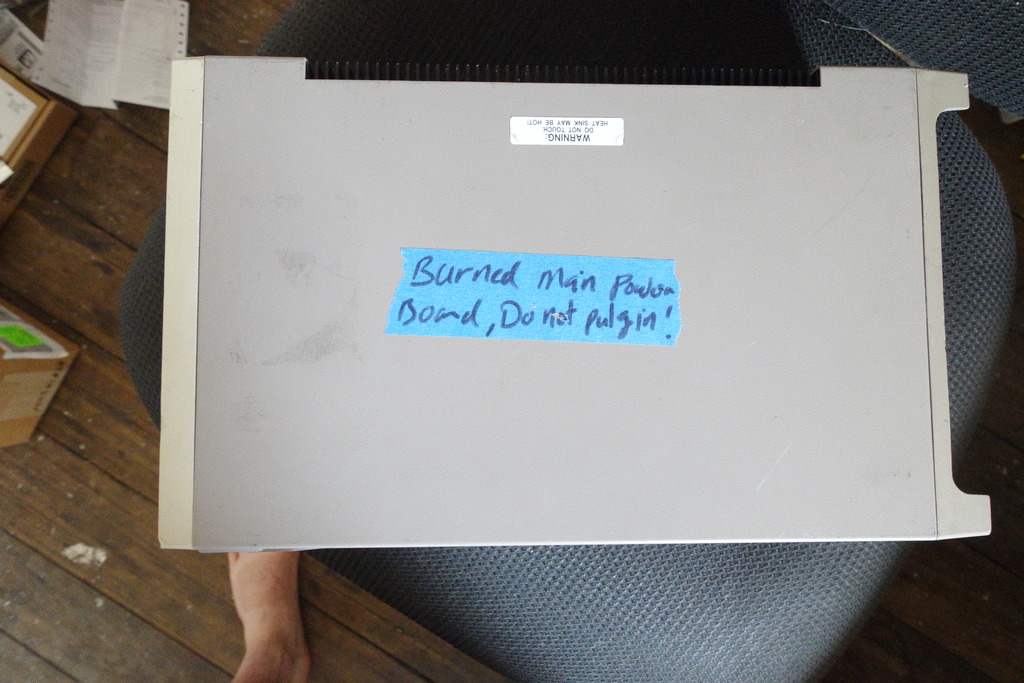 WARNING:
DO NOT TOUCH.
HEAT SINK MAY BE HOT!
Burned Main Power
Board, Do not pulg in!